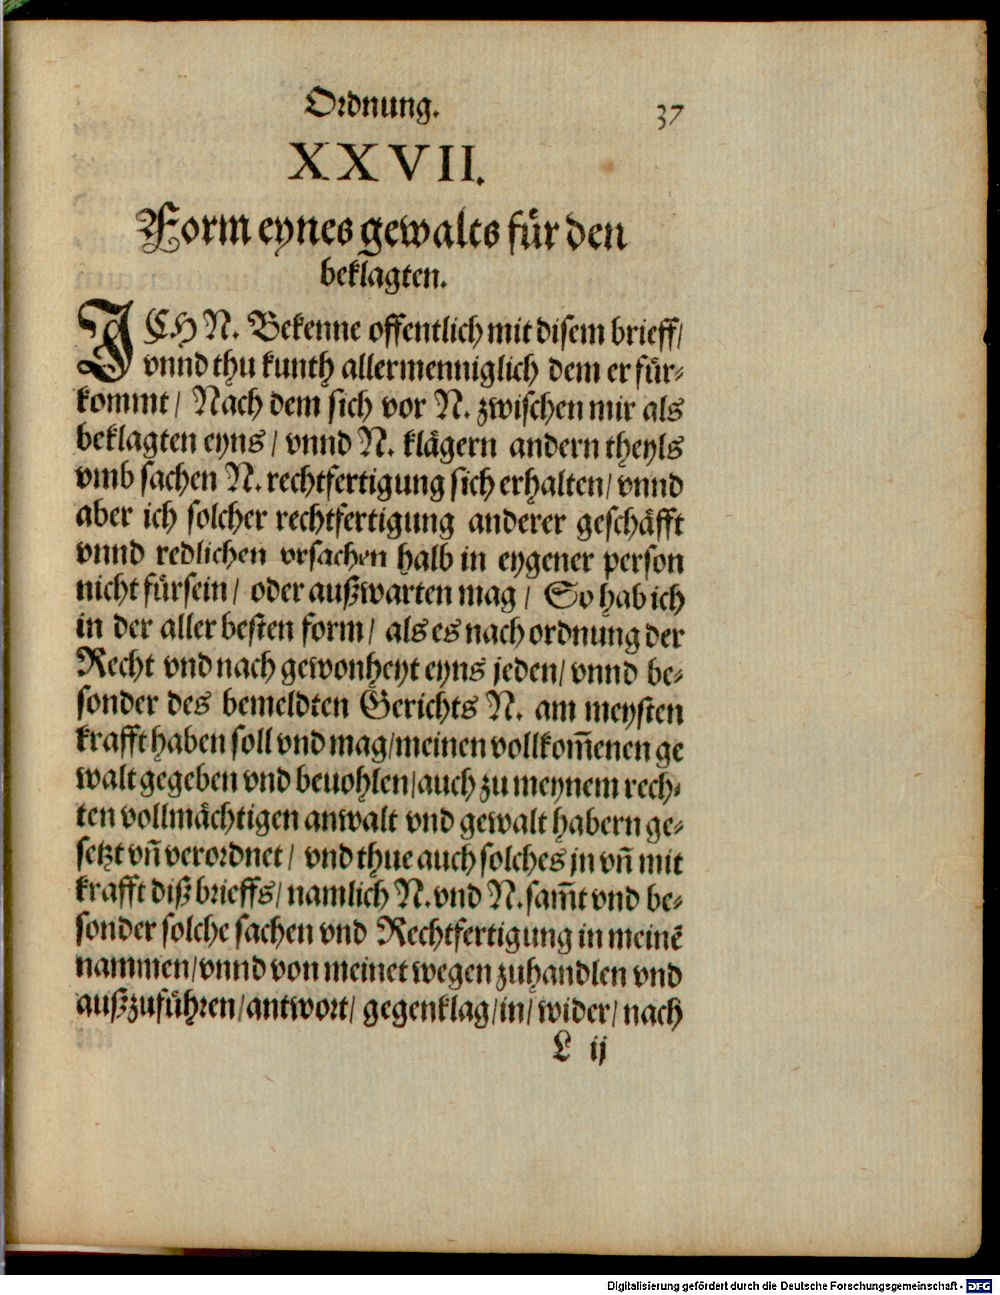 Ordnung. 37
XXVII.
Form eynes gewalts fuͤr den
beklagten.
ICH N. Bekenne offentlich mit disem brieff/
vnnd thu kunth allermenniglich dem er fuͤr⸗
kommt/ Nach dem sich vor N. zwischen mir als
beklagten eyns/ vnnd N. klaͤgern andern theyls
vmb sachen N. rechtfertigung sich erhalten/ vnnd
aber ich solcher rechtfertigung anderer geschaͤfft
vnnd redlichen vrsachen halb in eygener person
nicht fuͤrsein/ oder außwarten mag/ So hab ich
in der aller besten form/ als es nach ordnung der
Recht vnd nach gewonheyt eyns jeden/ vnnd be⸗
sonder des bemeldten Gerichts N. am meysten
krafft haben soll vnd mag/ meinen vollkom̃enen ge
walt gegeben vnd beuohlen/ auch zu meynem rech⸗
ten vollmaͤchtigen anwalt vnd gewalt habern ge⸗
setzt vñ verordnet/ vnd thue auch solches jn vñ mit
krafft diß brieffs/ namlich N. vnd N. sam̃t vnd be⸗
sonder solche sachen vnd Rechtfertigung in meinẽ
nammen/ vnnd von meinet wegen zuhandlen vnd
außzufuͤhren/ antwort/ gegenklag/ in/ wider/ nach
L ij
Digitalisierung gefördert durch die Deutsche Forschungsgemeinschaft - DFG